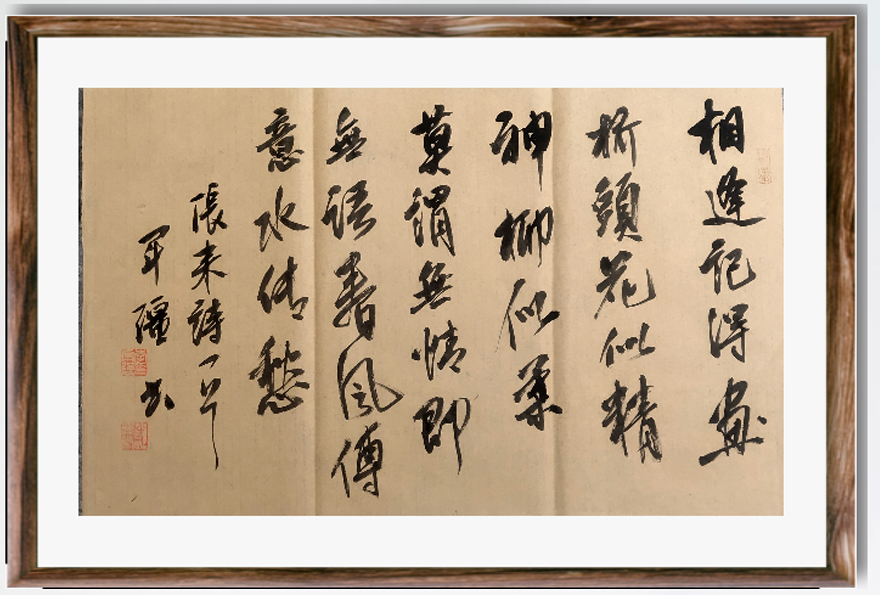 相逢記得畫
桥頭花似精
神柳似柔
莫謂無情即
無語春風傳
意水傳愁
張耒詩一節
军疆书